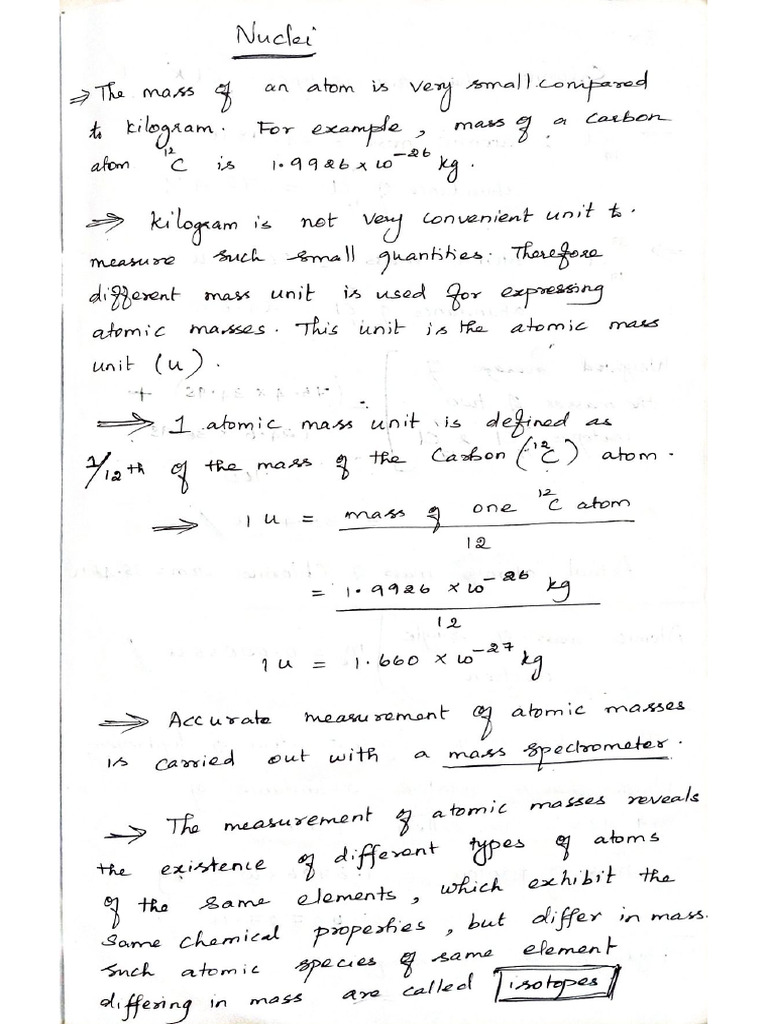 Nuclei
⇒ The mass of an atom is very small compared
to kilogram. For example, mass of a carbon
atom ¹²C is 1.9926 x 10⁻²⁶ kg.
⇒ kilogram is not very convenient unit to.
measure such small quantities. Therefore
different mass unit is used for expressing
atomic masses. This unit is the atomic mass
unit (u).
⇒ 1 atomic mass unit is defined as
1/12th of the mass of the Carbon (¹²C) atom.
⇒ 1 u = mass of one ¹²C atom
12
= 1.9926 x 10⁻²⁶ kg
12
1 u = 1.660 x 10⁻²⁷ kg
⇒ Accurate measurement of atomic masses
is carried out with a mass spectrometer.
⇒ The measurement of atomic masses reveals
the existence of different types of atoms
of the same elements, which exhibit the
same chemical properties, but differ in mass.
such atomic species of same element
differing in mass are called isotopes